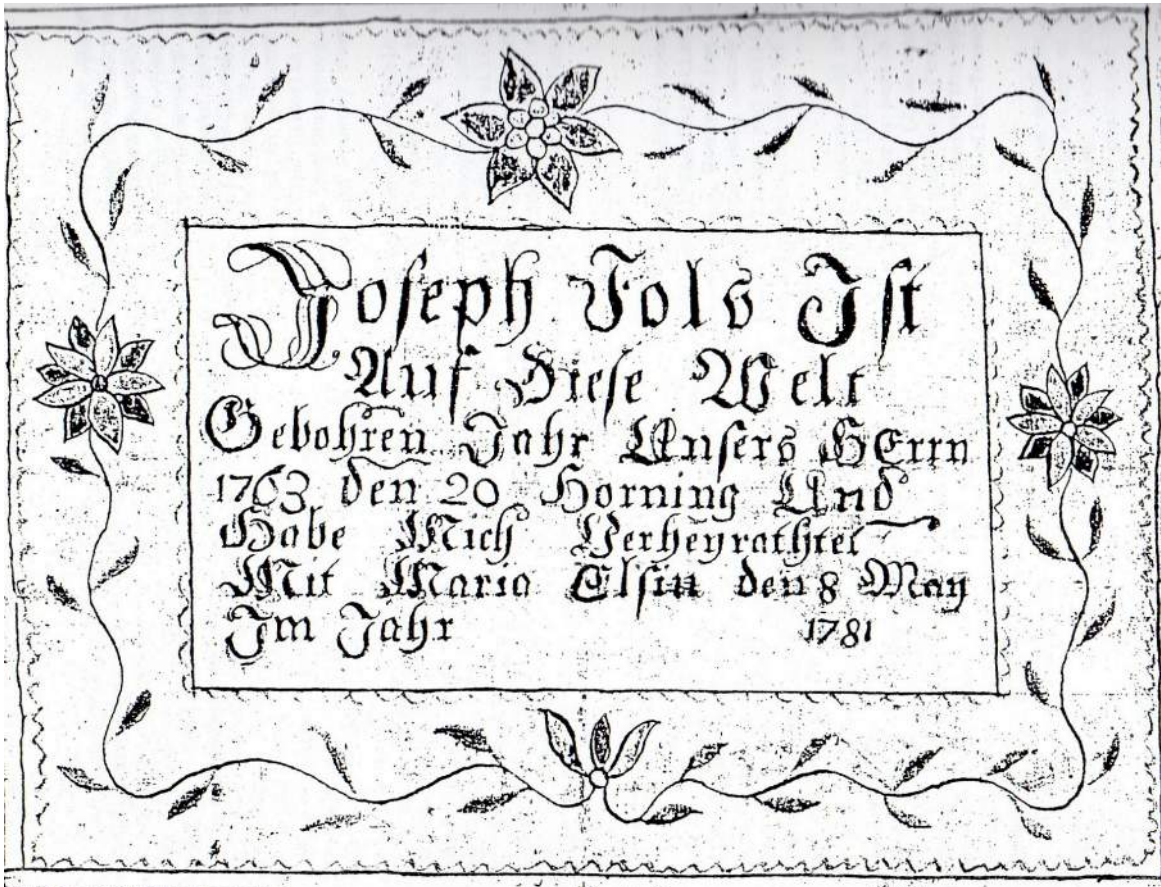 Joseph Ist
Auf Diese Welt
Gebohren Jahr Unsers HErrn
1763 den 20 Horning Und
Habe Mich Verheyrathtet
Mit Maria Elsin den 8 May
Im Jahr 1781